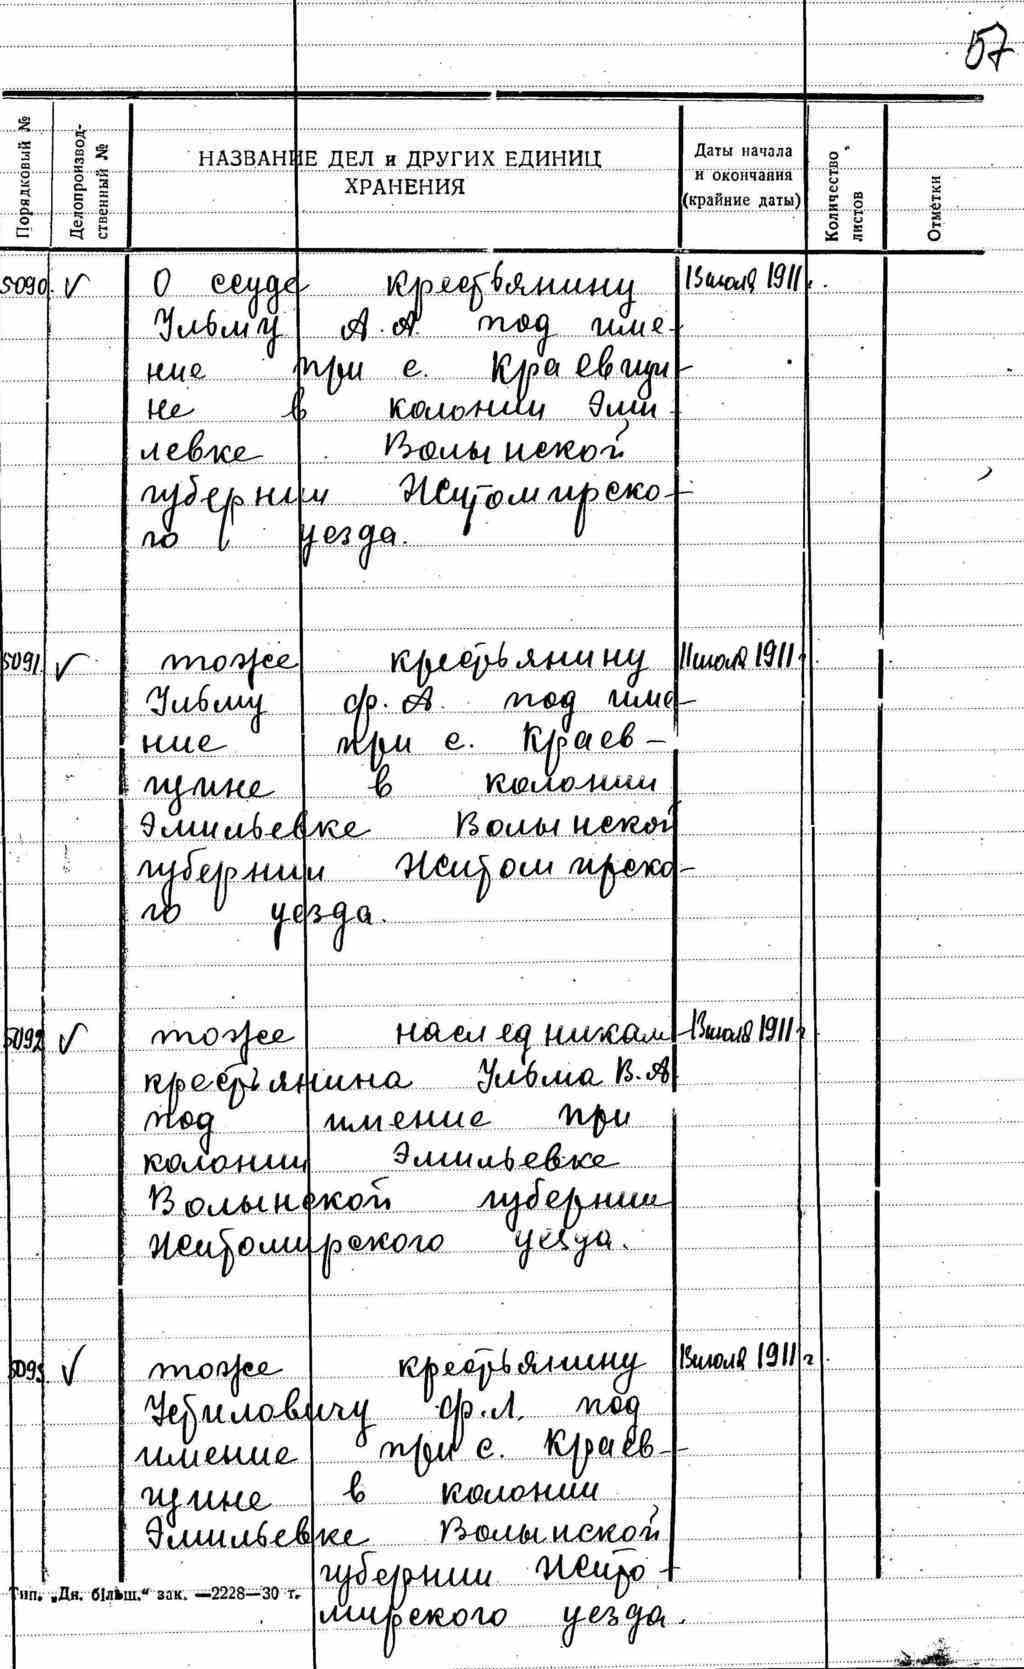 57
Порядковый №
Делопроизвод-
ственный №
НАЗВАНИЕ ДЕЛ и ДРУГИХ ЕДИНИЦ
ХРАНЕНИЯ
Даты начала
и окончания
(крайние даты)
Количество
листов
Отметки
5090. ✓ О ссуде крестьянину 13 июля 1911 г.
Ульму А.А. под име-
ние при с. Краевщи-
не в колонии Эми-
левке Волынской
губернии Житомирско-
го уезда.
5091. ✓ тоже крестьянину 11 июля 1911 г.
Ульму Ф.А. под име-
ние при с. Краев-
щине в колонии
Эмильевке Волынской
губернии Житомирско-
го уезда.
5092 ✓ тоже наследникам 13 июля 1911 г.
крестьянина Ульма В.А.
под имение при
колонии Эмильевке
Волынской губернии
Житомирского уезда.
✓ тоже крестьянину 13 июля 1911 г.
Устиловичу Ф.Л. под
имение при с. Краев-
щине в колонии
Эмильевке Волынской
губернии Жито-
мирского уезда.
Тип. „Дн. більш.“ зак. —2228—30 т.